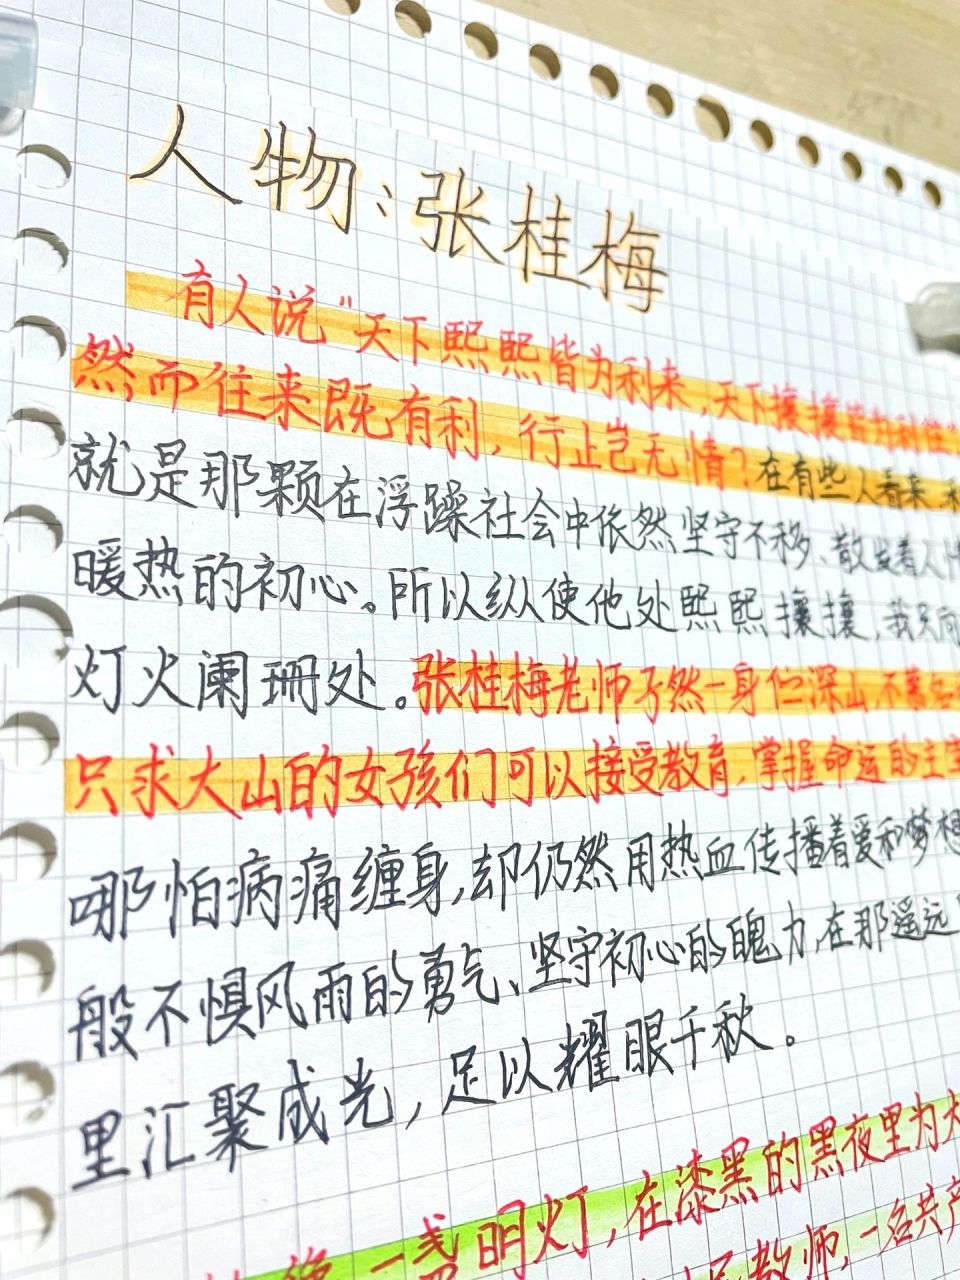 人物：张桂梅
有人说“天下熙熙皆为利来，天下攘攘皆为利往”
然而往来既有利，行止岂无情？在有些人看来，
就是那颗在浮躁社会中依然坚守不移、散发着人
暖热的初心。所以纵使他处熙熙攘攘，我只向
灯火阑珊处。张桂梅老师孑然一身伫深山，不慕
只求大山的女孩们可以接受教育，掌握命运的主宰
哪怕病痛缠身，却仍然用热血传播着爱和梦想
般不惧风雨的勇气、坚守初心的魄力，在那遥远
里汇聚成光，足以耀眼千秋。
像一盏明灯，在漆黑的黑夜里为大
教师，一名共产